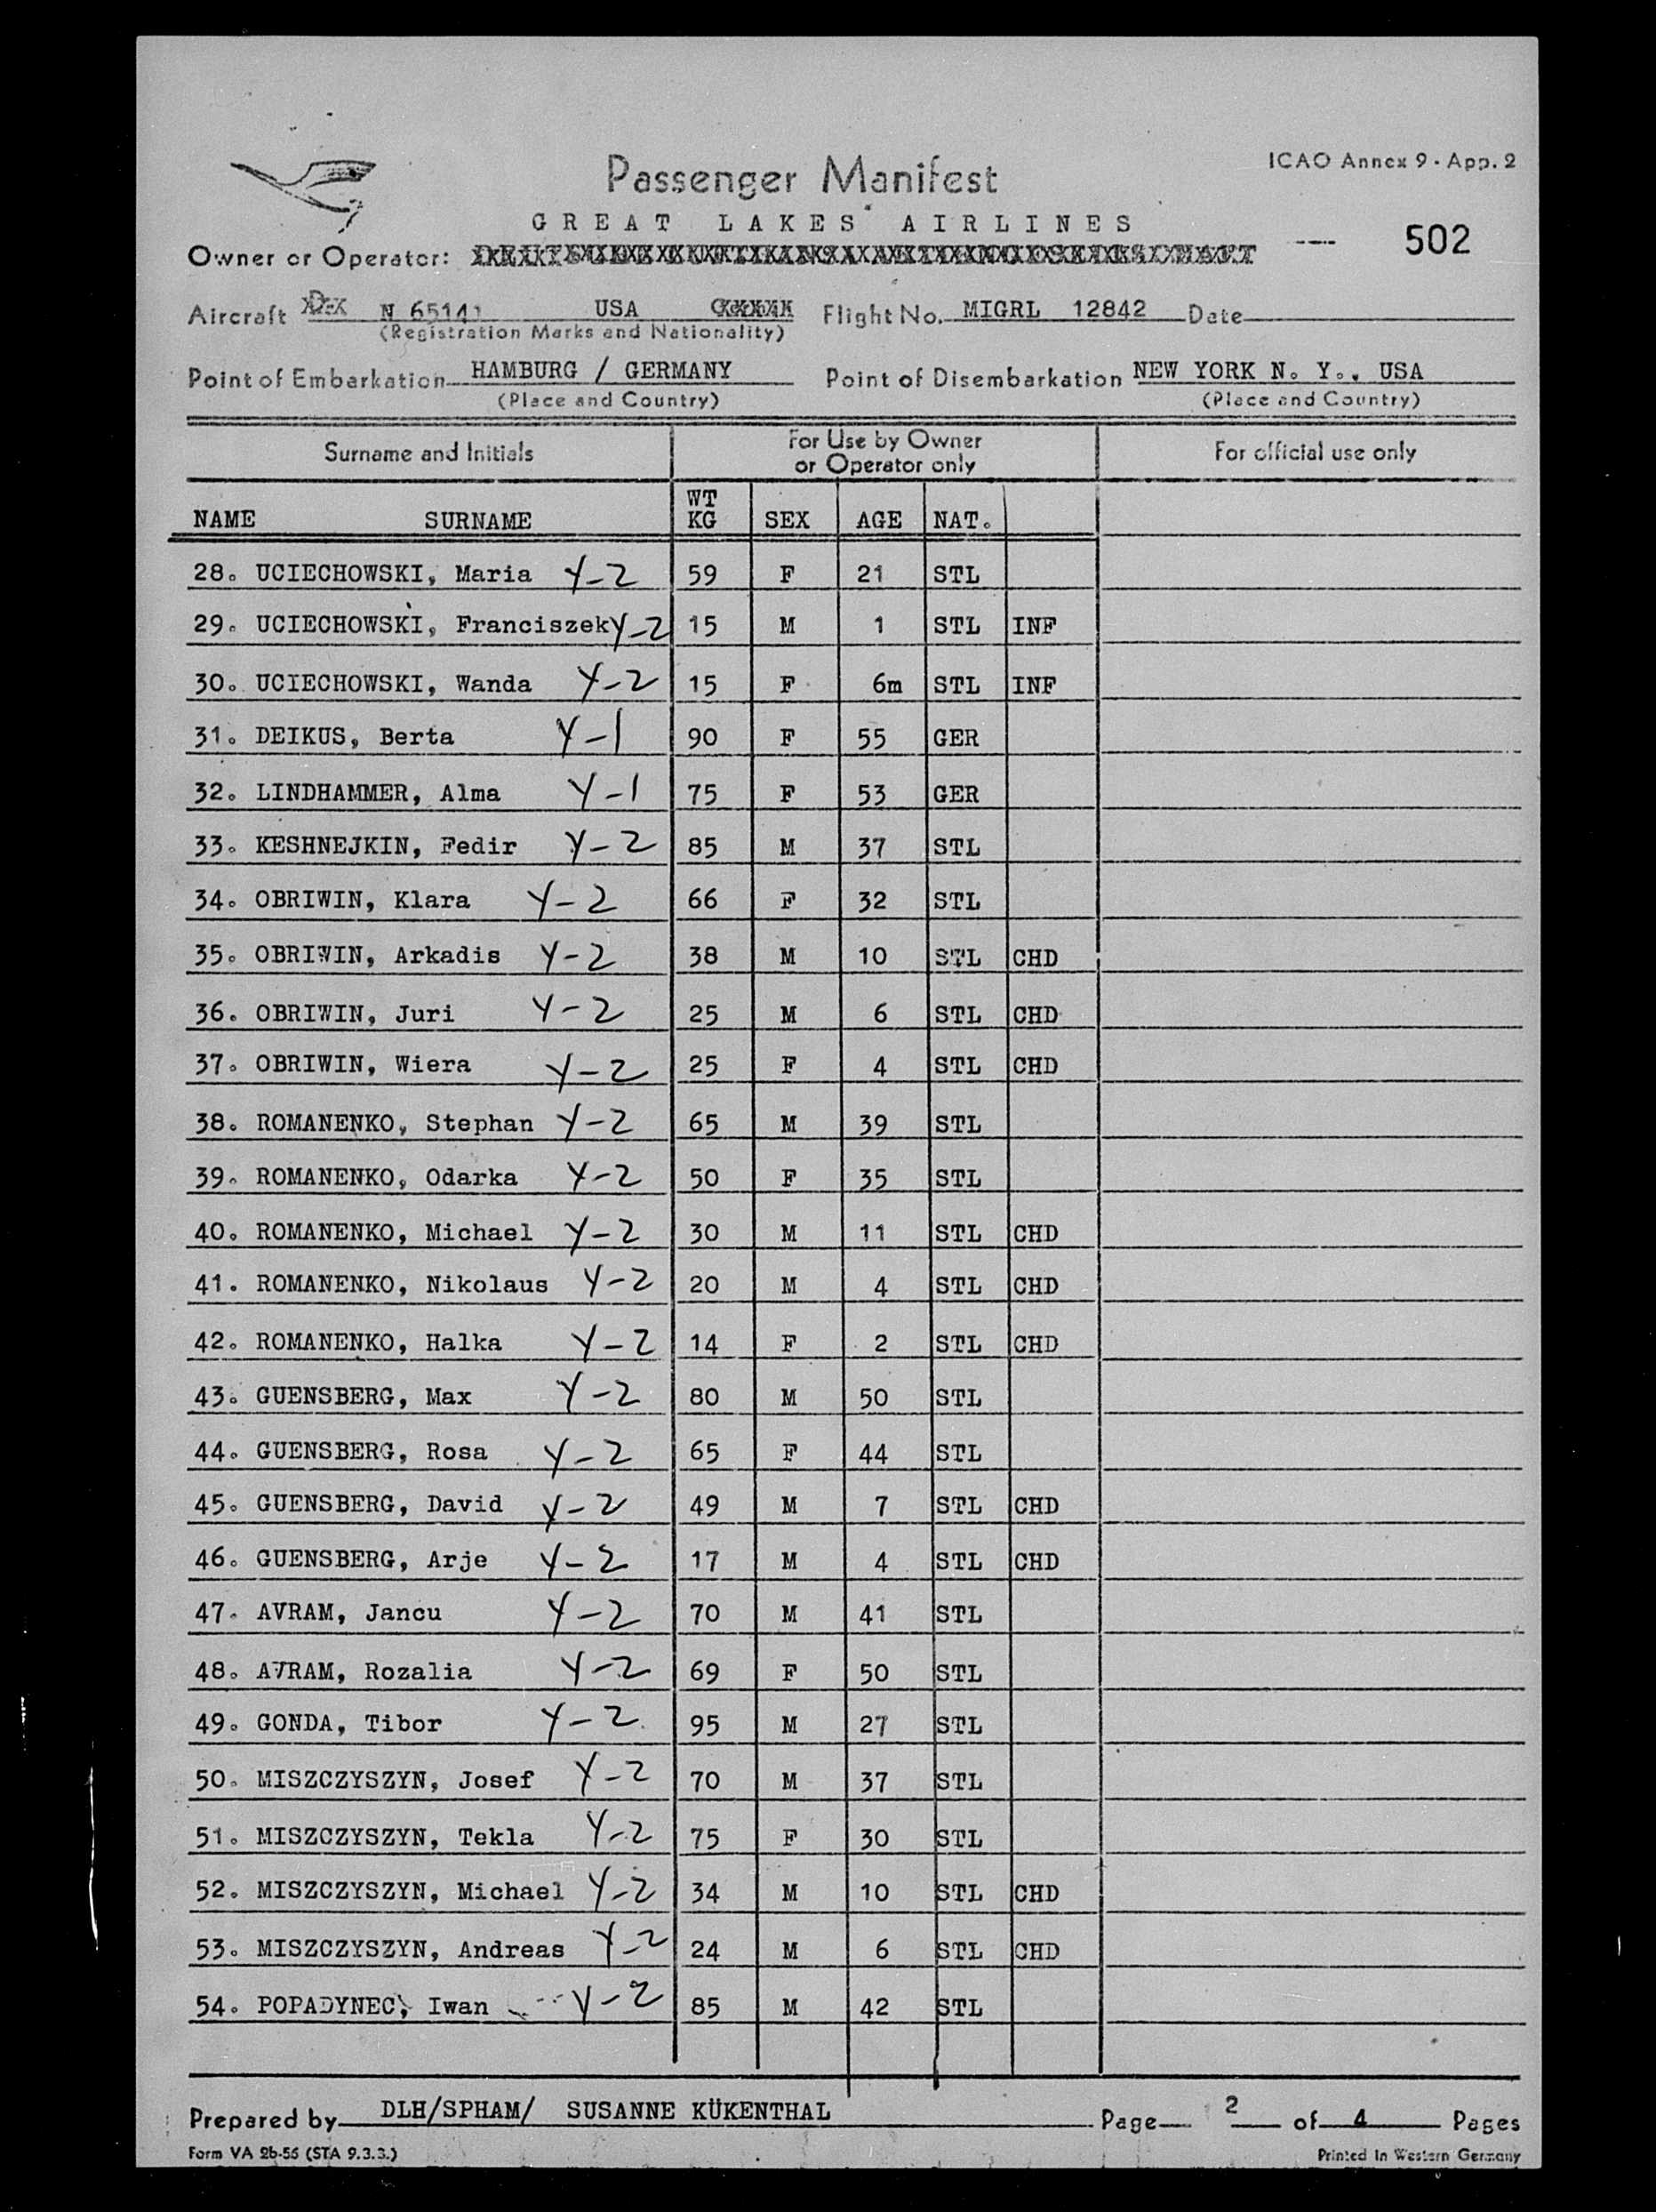 Passenger Manifest
ICAO Annex 9 - App. 2
GREAT LAKES AIRLINES
Owner or Operator: ---- 502
Aircraft N 65141 USA Flight No. MIGRL 12842 Date
(Registration Marks and Nationality)
Point of Embarkation HAMBURG / GERMANY Point of Disembarkation NEW YORK N. Y., USA
(Place and Country) (Place and Country)
Surname and Initials For Use by Owner or Operator only For official use only
NAME SURNAME WT KG SEX AGE NAT.
28. UCIECHOWSKI, Maria Y-2 59 F 21 STL
29. UCIECHOWSKI, Franciszek Y-2 15 M 1 STL INF
30. UCIECHOWSKI, Wanda Y-2 15 F 6m STL INF
31. DEIKUS, Berta Y-1 90 F 55 GER
32. LINDHAMMER, Alma Y-1 75 F 53 GER
33. KESHNEJKIN, Fedir Y-2 85 M 37 STL
34. OBRIWIN, Klara Y-2 66 F 32 STL
35. OBRIWIN, Arkadis Y-2 38 M 10 STL CHD
36. OBRIWIN, Juri Y-2 25 M 6 STL CHD
37. OBRIWIN, Wiera Y-2 25 F 4 STL CHD
38. ROMANENKO, Stephan Y-2 65 M 39 STL
39. ROMANENKO, Odarka Y-2 50 F 35 STL
40. ROMANENKO, Michael Y-2 30 M 11 STL CHD
41. ROMANENKO, Nikolaus Y-2 20 M 4 STL CHD
42. ROMANENKO, Halka Y-2 14 F 2 STL CHD
43. GUENSBERG, Max Y-2 80 M 50 STL
44. GUENSBERG, Rosa Y-2 65 F 44 STL
45. GUENSBERG, David Y-2 49 M 7 STL CHD
46. GUENSBERG, Arje Y-2 17 M 4 STL CHD
47. AVRAM, Jancu Y-2 70 M 41 STL
48. AVRAM, Rozalia Y-2 69 F 50 STL
49. GONDA, Tibor Y-2 95 M 27 STL
50. MISZCZYSZYN, Josef Y-2 70 M 37 STL
51. MISZCZYSZYN, Tekla Y-2 75 F 30 STL
52. MISZCZYSZYN, Michael Y-2 34 M 10 STL CHD
53. MISZCZYSZYN, Andreas Y-2 24 M 6 STL CHD
54. POPADYNEC, Iwan Y-2 85 M 42 STL
Prepared by DLH/SPHAM/ SUSANNE KÜKENTHAL Page 2 of 4 Pages
Form VA 2b-56 (STA 9.3.3.) Printed in Western Germany